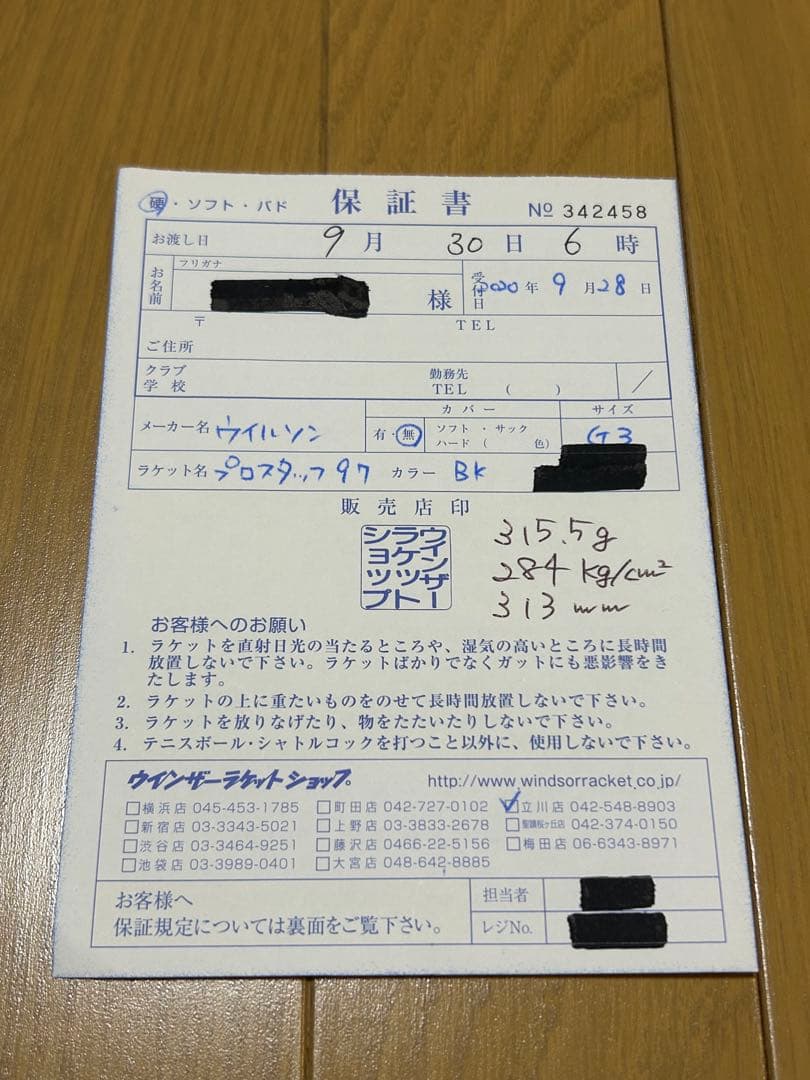 硬・ソフト・バド 保証書 No 342458
お渡し日 9月 30日 6時
お名前 フリガナ 様 受付日 2020年 9月28日
〒 TEL
ご住所
クラブ 学校 勤務先 TEL ( ) /
メーカー名 ウイルソン 有・無 カバー ソフト・サック ハード( 色) サイズ G3
ラケット名 プロスタッフ97 カラー BK
販売店印
ウインザーラケットショップ
315.5g
284 kg/cm²
313 mm
お客様へのお願い
1. ラケットを直射日光の当たるところや、湿気の高いところに長時間
放置しないで下さい。ラケットばかりでなくガットにも悪影響をき
たします。
2. ラケットの上に重たいものをのせて長時間放置しないで下さい。
3. ラケットを放りなげたり、物をたたいたりしないで下さい。
4. テニスボール・シャトルコックを打つこと以外に、使用しないで下さい。
ウインザーラケットショップ。 http://www.windsorracket.co.jp/
□横浜店 045-453-1785 □町田店 042-727-0102 ☑立川店 042-548-8903
□新宿店 03-3343-5021 □上野店 03-3833-2678 □聖蹟桜ヶ丘店 042-374-0150
□渋谷店 03-3464-9251 □藤沢店 0466-22-5156 □梅田店 06-6343-8971
□池袋店 03-3989-0401 □大宮店 048-642-8885
お客様へ 担当者
保証規定については裏面をご覧下さい。 レジNo.